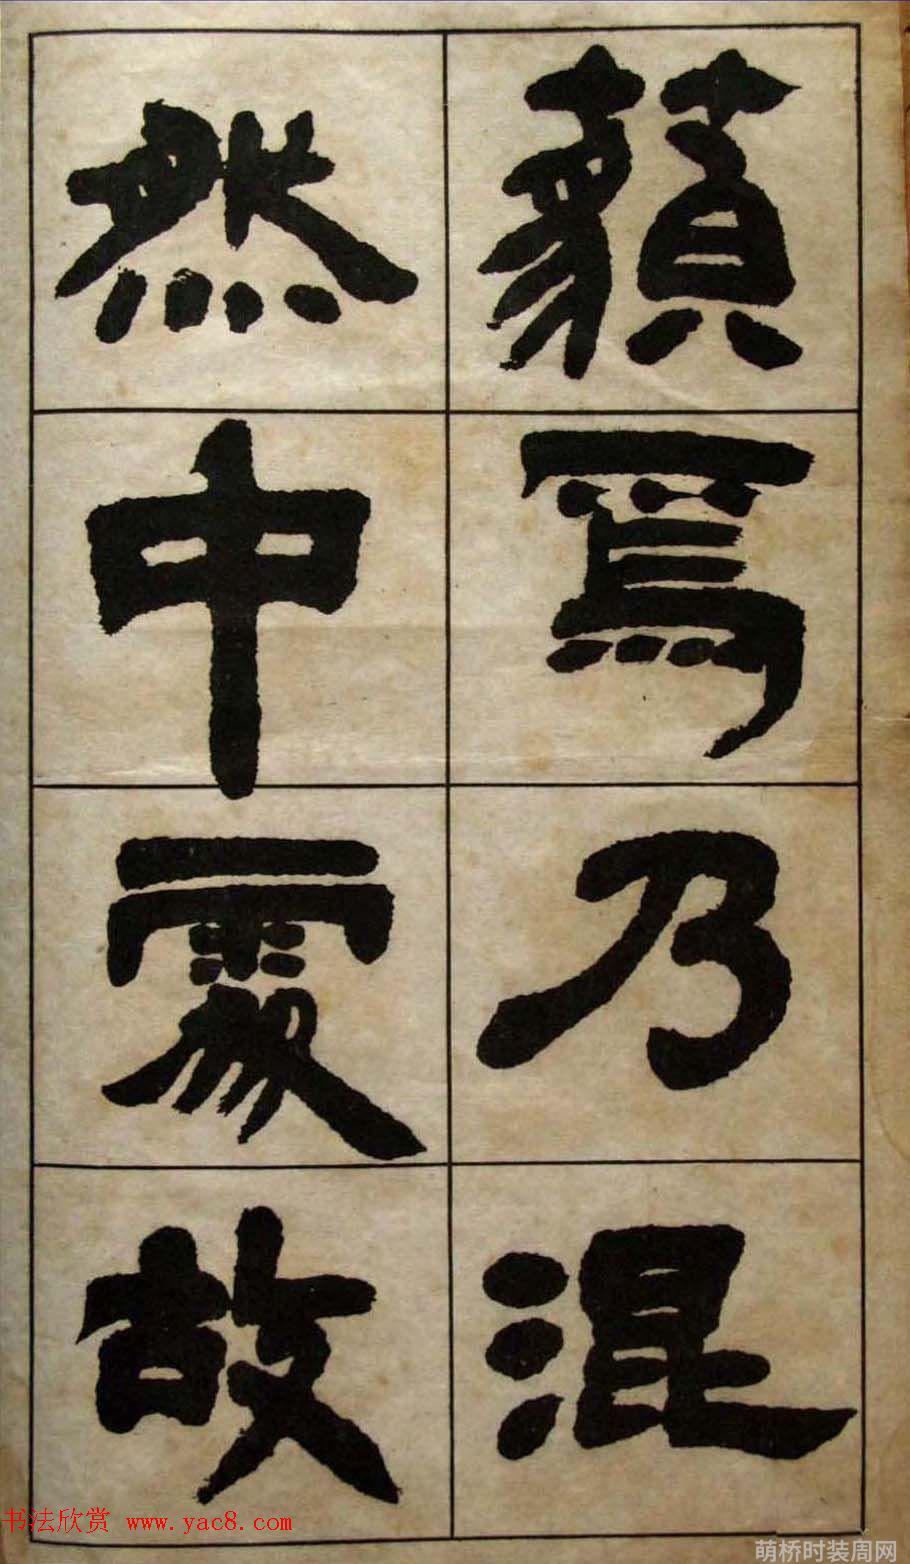 藐焉乃混
然中處故
书法欣赏 www.yac8.com
萌桥时装周网